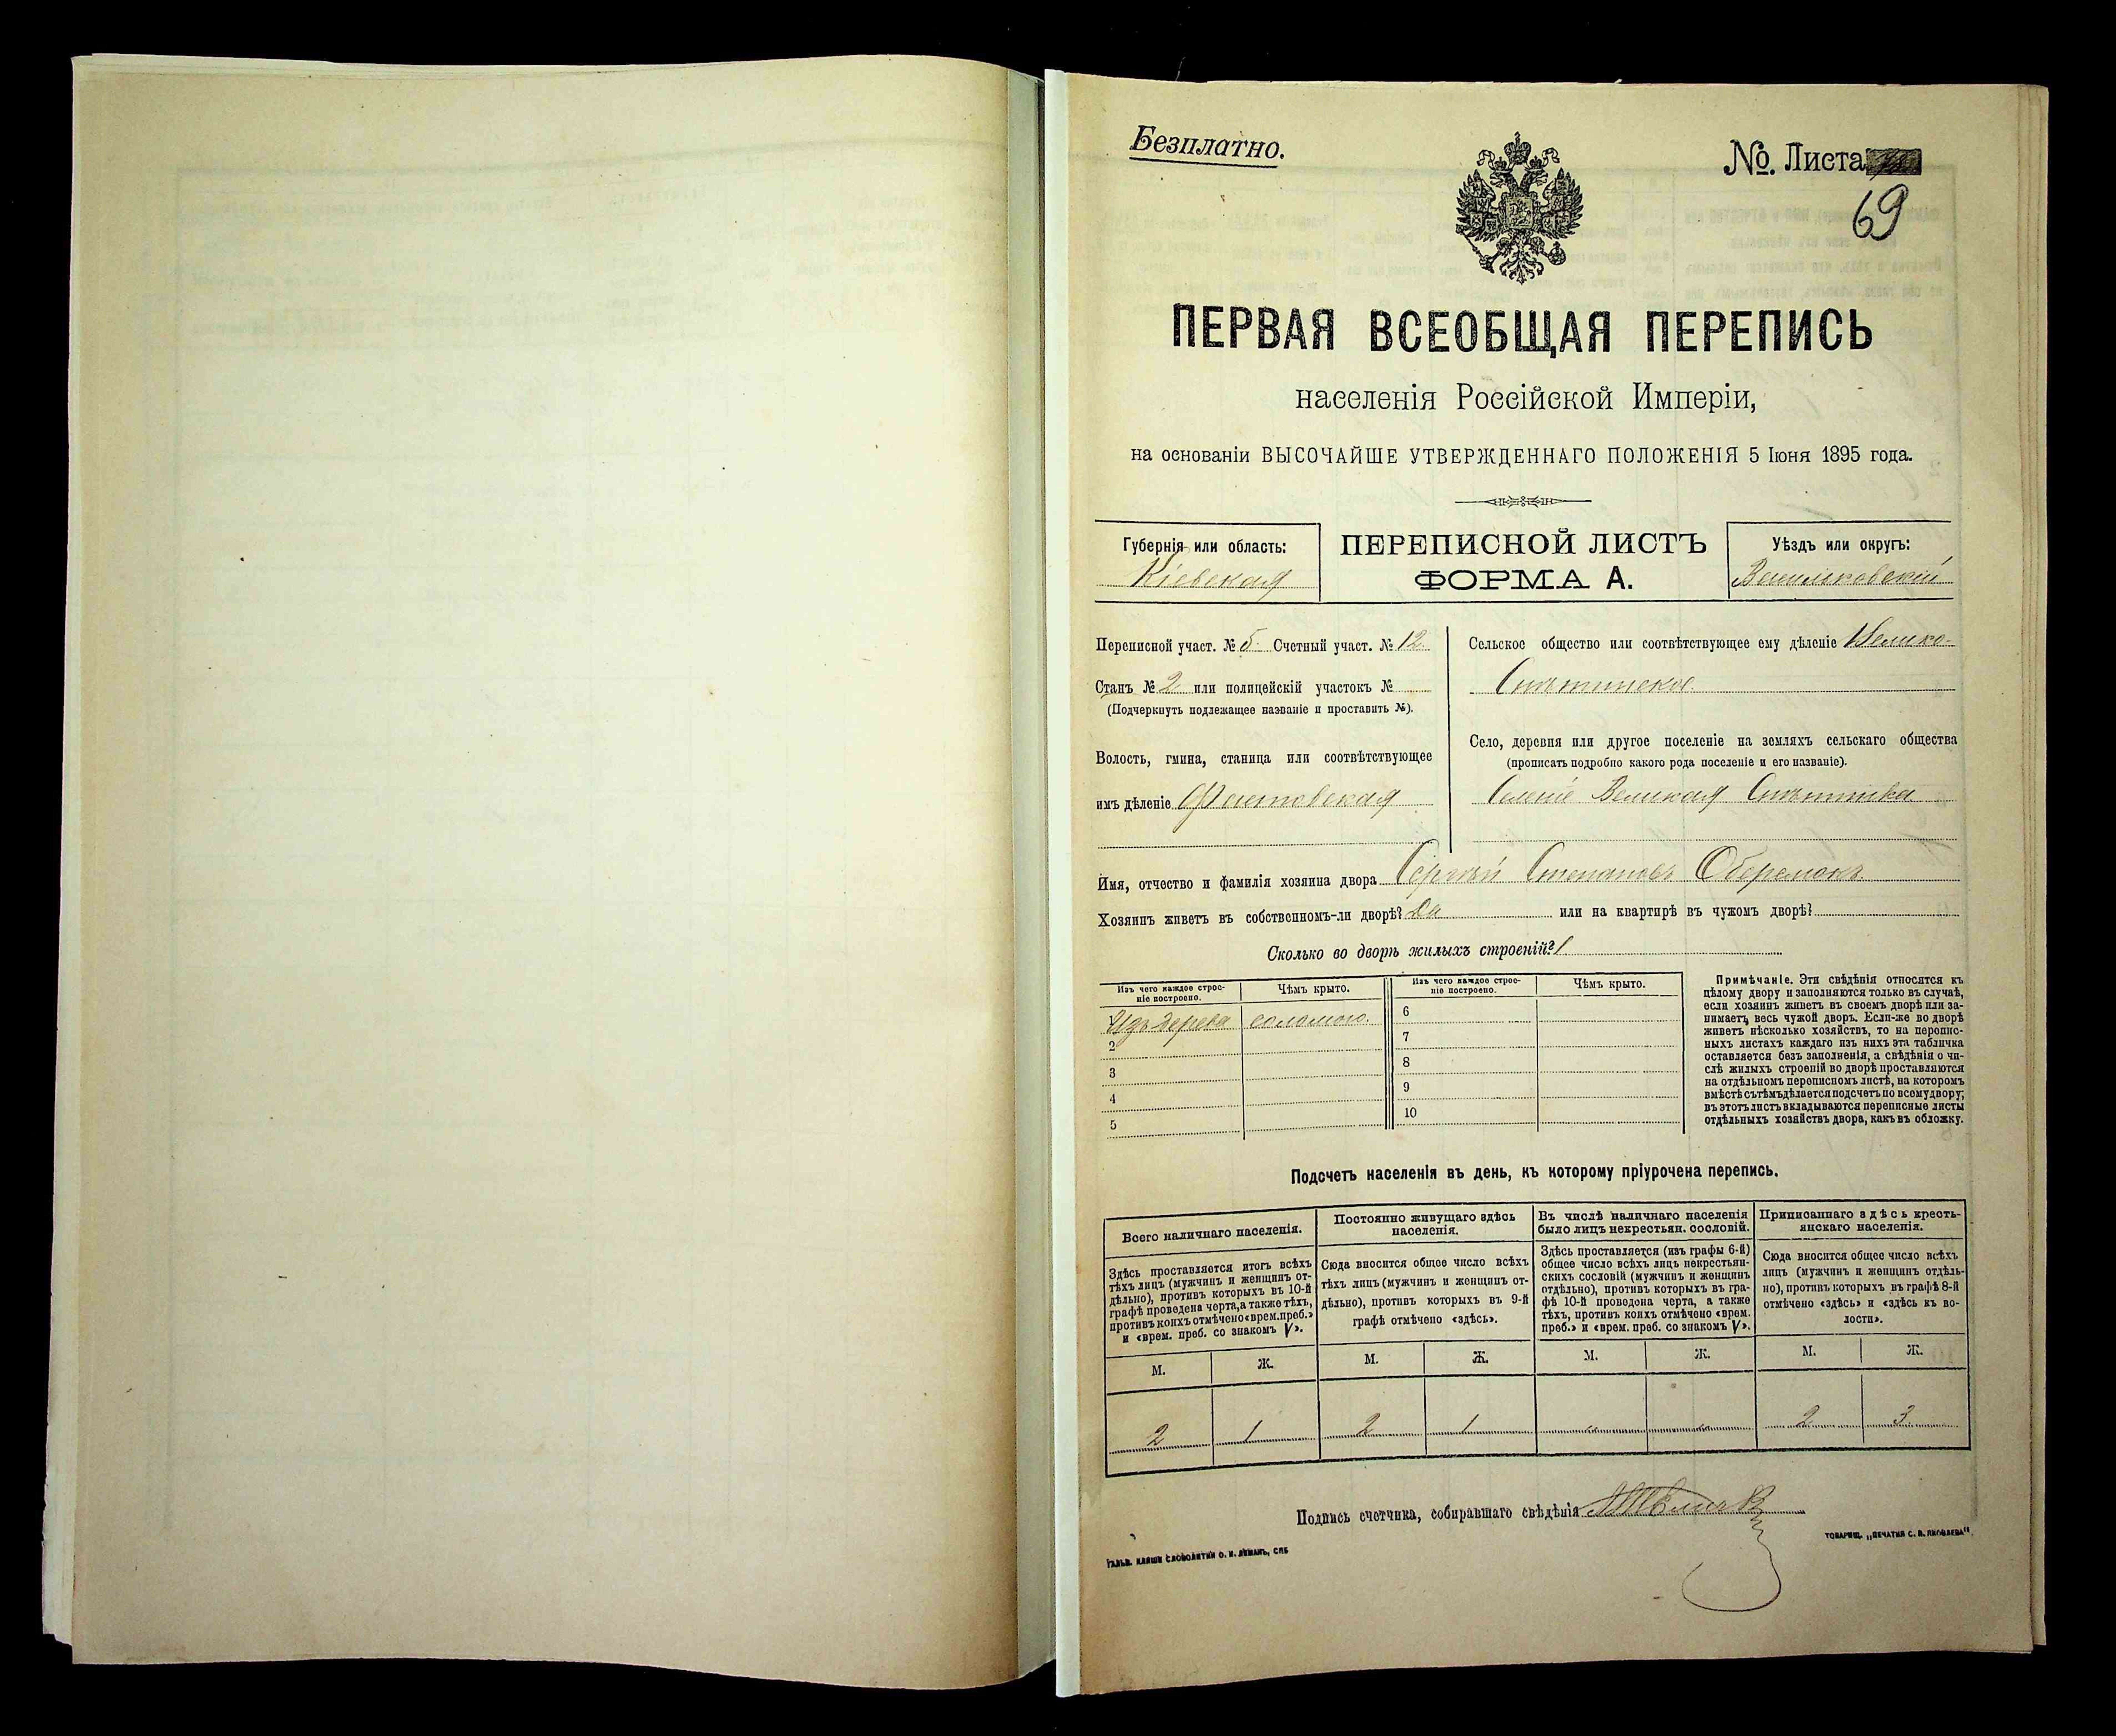 Безплатно.
№. Листа
69
ПЕРВАЯ ВСЕОБЩАЯ ПЕРЕПИСЬ
населенія Россійской Имперіи,
на основаніи ВЫСОЧАЙШЕ УТВЕРЖДЕННАГО ПОЛОЖЕНІЯ 5 Іюня 1895 года.
Губернія или область:
Кіевская
ПЕРЕПИСНОЙ ЛИСТЪ
ФОРМА А.
Уѣздъ или округъ:
Васильковскій
Переписной участ. № 5. Счетный участ. № 12.
Станъ № 2 или полицейскій участокъ №
(Подчеркнуть подлежащее названіе и проставить №).
Волость, гмина, станица или соотвѣтствующее
имъ дѣленіе Фастовская
Сельское общество или соотвѣтствующее ему дѣленіе Велико-
Снѣтинское.
Село, деревня или другое поселеніе на земляхъ сельскаго общества
(прописать подробно какого рода поселеніе и его названіе).
Селеніе Великая Снѣтинка
Имя, отчество и фамилія хозяина двора Сергѣй Степановъ Оберемокъ
Хозяинъ живетъ въ собственномъ-ли дворѣ? Да или на квартирѣ въ чужомъ дворѣ?
Сколько во дворѣ жилыхъ строеній? 1
Изъ чего каждое строе-
ніе построено.
Чѣмъ крыто.
Изъ дерева соломою.
2
3
4
5
Изъ чего каждое строе-
ніе построено.
Чѣмъ крыто.
6
7
8
9
10
Примѣчаніе. Эти свѣдѣнія относятся къ
цѣлому двору и заполняются только въ случаѣ,
если хозяинъ живетъ въ своемъ дворѣ или за-
нимаетъ весь чужой дворъ. Если-же во дворѣ
живетъ нѣсколько хозяйствъ, то на перепис-
ныхъ листахъ каждаго изъ нихъ эта табличка
оставляется безъ заполненія, а свѣдѣнія о чи-
слѣ жилыхъ строеній во дворѣ проставляются
на отдѣльномъ переписномъ листѣ, на которомъ
вмѣстѣ съ тѣмъ дѣлается подсчетъ по всему двору;
въ этотъ листъ вкладываются переписные листы
отдѣльныхъ хозяйствъ двора, какъ въ обложку.
Подсчетъ населенія въ день, къ которому пріурочена перепись.
Всего наличнаго населенія.
Здѣсь проставляется итогъ всѣхъ
тѣхъ лицъ (мужчинъ и женщинъ от-
дѣльно), противъ которыхъ въ 10-й
графѣ проведена черта, а также тѣхъ,
противъ коихъ отмѣчено «врем. преб.»
и «врем. преб. со знакомъ V».
М. Ж.
2 1
Постоянно живущаго здѣсь
населенія.
Сюда вносится общее число всѣхъ
тѣхъ лицъ (мужчинъ и женщинъ от-
дѣльно), противъ которыхъ въ 9-й
графѣ отмѣчено «здѣсь».
М. Ж.
2 1
Въ числѣ наличнаго населенія
было лицъ некрестьян. сословій.
Здѣсь проставляется (изъ графы 6-й)
общее число всѣхъ лицъ некрестьян-
скихъ сословій (мужчинъ и женщинъ
отдѣльно), противъ которыхъ въ гра-
фѣ 10-й проведена черта, а также
тѣхъ, противъ коихъ отмѣчено «врем.
преб.» и «врем. преб. со знакомъ V».
М. Ж.
„ „
Приписаннаго здѣсь кресть-
янскаго населенія.
Сюда вносится общее число всѣхъ
лицъ (мужчинъ и женщинъ отдѣль-
но), противъ которыхъ въ графѣ 8-й
отмѣчено «здѣсь» и «здѣсь къ во-
лости».
М. Ж.
2 3
Подпись счетчика, собиравшаго свѣдѣнія
ГАЛЬВ. КЛИШЕ СЛОВОЛИТНИ О. И. ЛЕМАНЪ, СПБ
ТОВАРИЩ. „ПЕЧАТНЯ С. П. ЯКОВЛЕВА“.